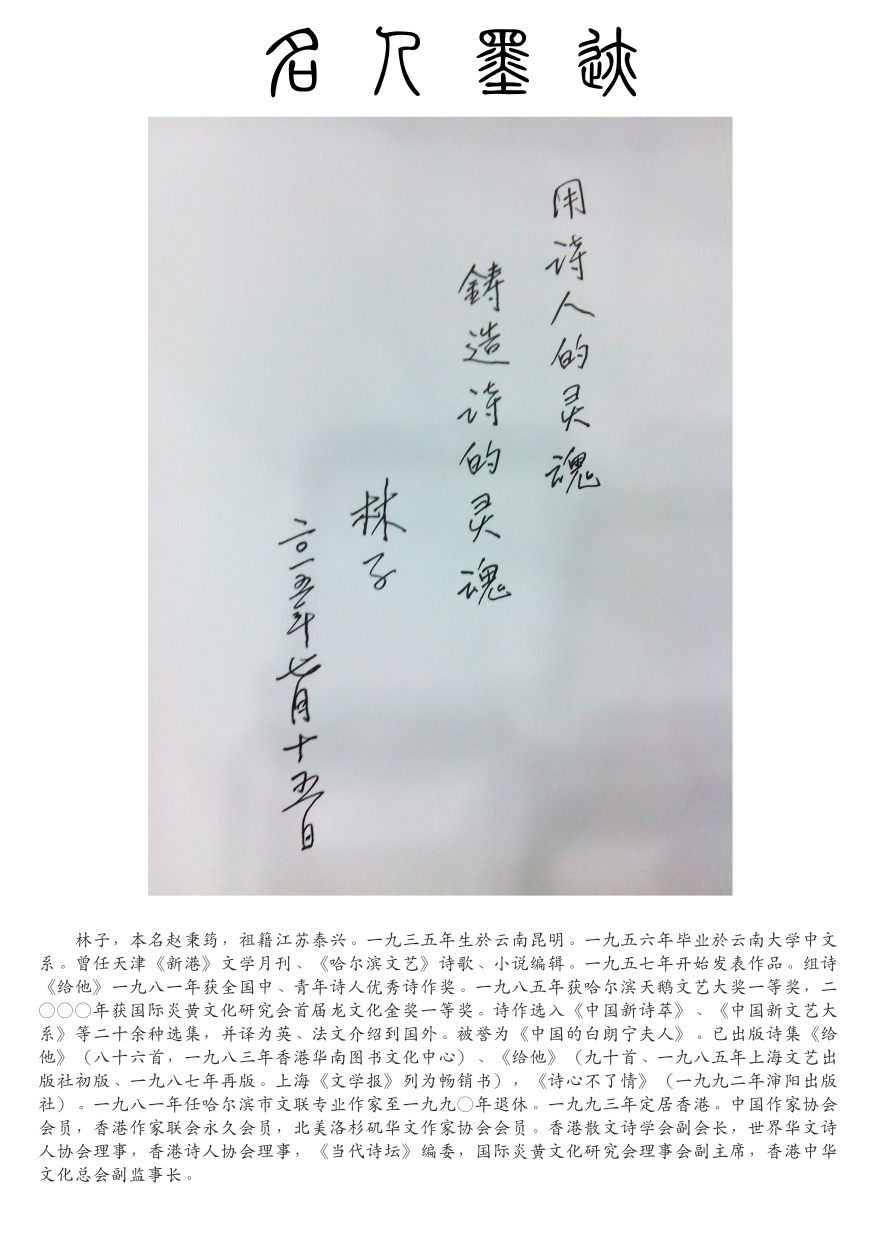 名人墨迹
用诗人的灵魂
鋳造诗的灵魂
林子
二〇一五年七月十五日
林子，本名赵秉筠，祖籍江苏泰兴。一九三五年生於云南昆明。一九五六年毕业於云南大学中文
系。曾任天津《新港》文学月刊、《哈尔滨文艺》诗歌、小说编辑。一九五七年开始发表作品。组诗
《给他》一九八一年获全国中、青年诗人优秀诗作奖。一九八五年获哈尔滨天鹅文艺大奖一等奖，二
〇〇〇年获国际炎黄文化研究会首届龙文化金奖一等奖。诗作选入《中国新诗萃》、《中国新文艺大
系》等二十余种选集，并译为英、法文介绍到国外。被誉为《中国的白朗宁夫人》。已出版诗集《给
他》（八十六首，一九八三年香港华南图书文化中心）、《给他》（九十首、一九八五年上海文艺出
版社初版、一九八七年再版。上海《文学报》列为畅销书），《诗心不了情》（一九九二年渖阳出版
社）。一九八一年任哈尔滨市文联专业作家至一九九〇年退休。一九九三年定居香港。中国作家协会
会员，香港作家联会永久会员，北美洛杉矶华文作家协会会员。香港散文诗学会副会长，世界华文诗
人协会理事，香港诗人协会理事，《当代诗坛》编委，国际炎黄文化研究会理事会副主席，香港中华
文化总会副监事长。